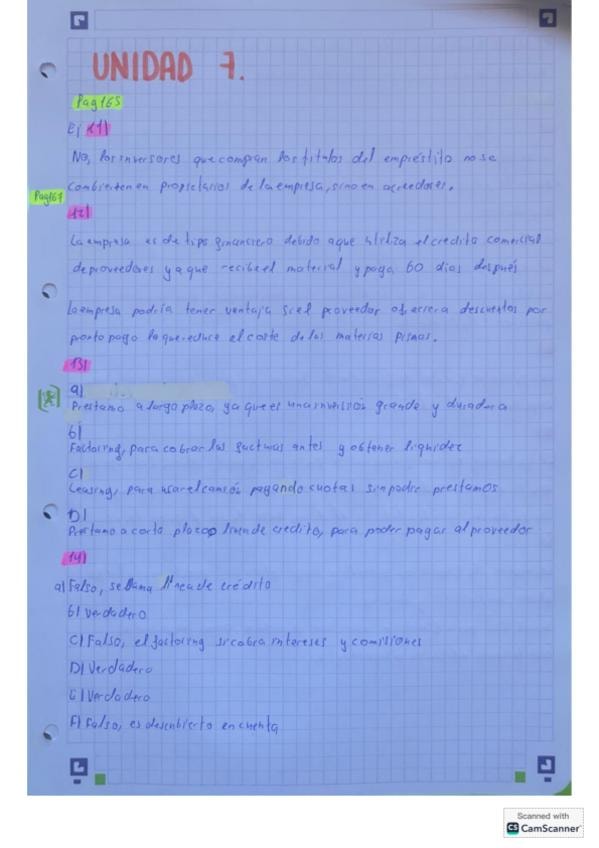 UNIDAD 7.
Pag165
Ej 11)
No, los inversores que compan los titulos del empréstito no se
combierten en propietarios de la empresa, sino en acreedores.
Pag167
12)
La empresa es de tipo financiero debido a que utiliza el credito comercial
de proveedores y a que recibe el material y paga 60 dias después
La empresa podría tener ventaja si el proveedor ofreciera descuentos por
ponto pago lo que reduce el coste de las materias primas.
13)
a)
Prestamo a largo plazo, ya que es una inversión grande y duradera
b)
Factoring, para cobrar las facturas antes y obtener liquidez
C)
Leasing, para usar el camión pagando cuotas sin pedir prestamos
D)
Préstamo a corto plazo o linea de credito, para poder pagar al proveedor
14)
a) Falso, se llama línea de crédito
b) Verdadero
C) Falso, el factoring si cobra intereses y comisiones
D) Verdadero
E) Verdadero
F) Falso, es descubierto en cuenta
Scanned with
CS CamScanner